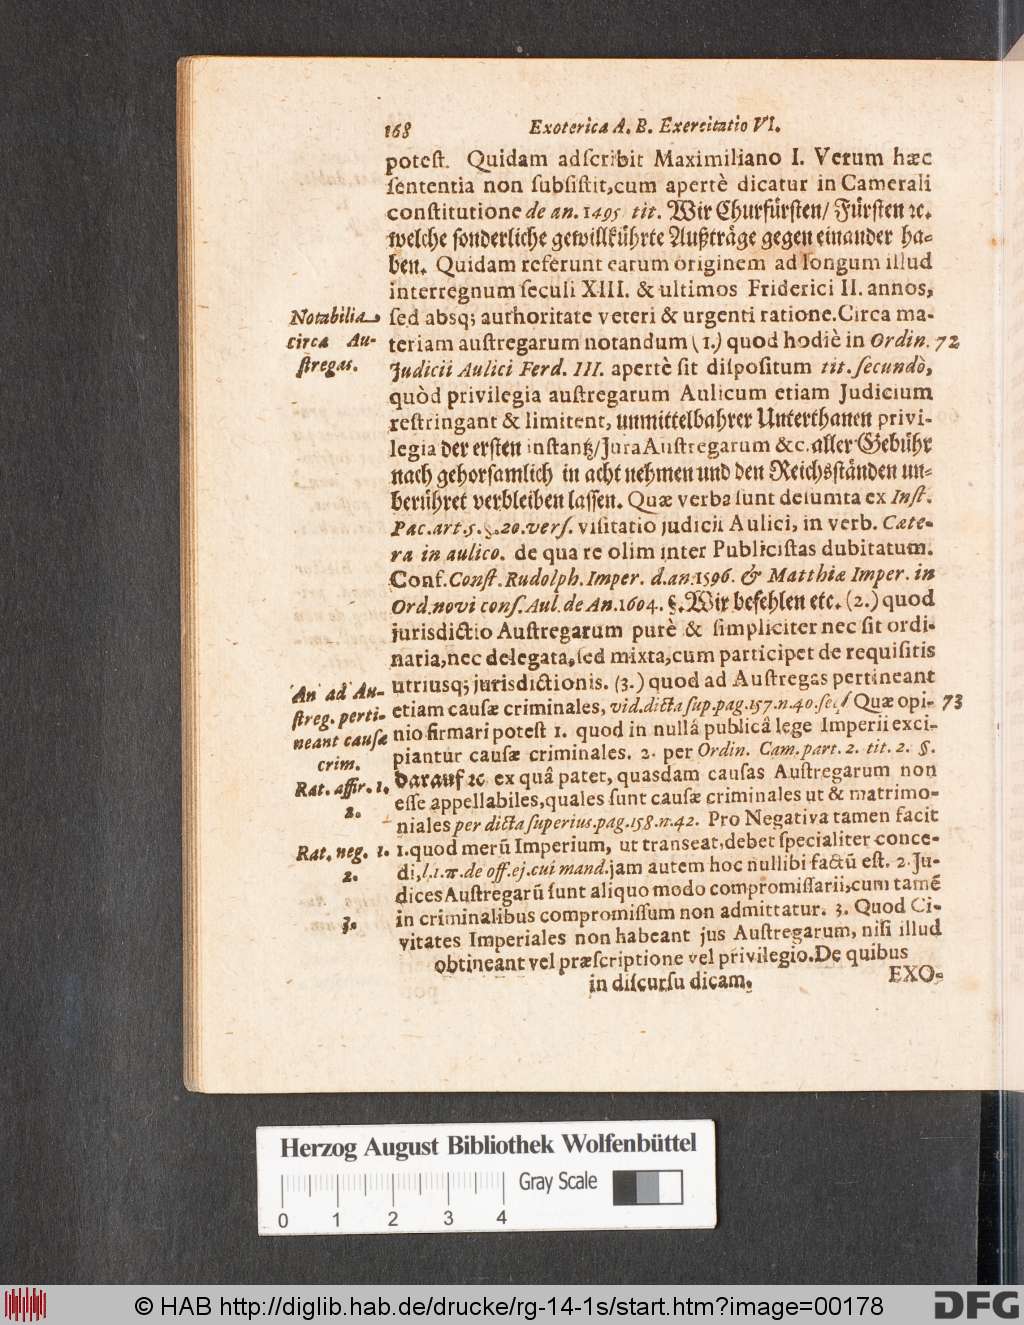 168 Exoterica A. B. Exercitatio VI.
poteſt. Quidam adſcribit Maximiliano I. Verum hæc
ſententia non ſubſiſtit,cum apertè dicatur in Camerali
conſtitutione de an. 1495 tit. Wir Churfürſten/ Fürſten ꝛc.
welche ſonderliche gewillkührte Außträge gegen einander ha-
ben. Quidam referunt earum originem ad longum illud
interregnum ſeculi XIII. & ultimos Friderici II. annos,
Notabilia ſed absq; authoritate veteri & urgenti ratione.Circa ma-
circa Au- teriam auſtregarum notandum (1.) quod hodiè in Ordin. 72
ſtregas. Judicii Aulici Ferd. III. apertè ſit diſpoſitum tit. ſecundò,
quòd privilegia auſtregarum Aulicum etiam Judicium
reſtringant & limitent, unmittelbahrer Unterthanen privi-
legia der erſten inſtantz/Jura Auſtregarum &c. aller Gebühr
nach gehorſamlich in acht nehmen und den Reichsſtänden un-
berühret verbleiben laſſen. Quæ verba ſunt deſumta ex Inſt.
Pac. art. 5. §. 20. verſ. viſitatio judicii Aulici, in verb. Cæte-
ra in aulico. de qua re olim inter Publiciſtas dubitatum.
Conf. Conſt. Rudolph. Imper. d. an. 1596. & Matthiæ Imper. in
Ord. novi conſ. Aul. de An. 1604. §. Wir befehlen etc. (2.) quod
jurisdictio Auſtregarum purè & ſimpliciter nec ſit ordi-
naria,nec delegata,ſed mixta,cum participet de requiſitis
An ad Au- utriusq; jurisdictionis. (3.) quod ad Auſtregas pertineant
ſtreg. perti- etiam cauſæ criminales, vid. dicta ſup. pag. 157. n. 40. Quæ opi- 73
neant cauſæ nio firmari poteſt 1. quod in nullâ publicâ lege Imperii exci-
crim. piantur cauſæ criminales. 2. per Ordin. Cam. part. 2. tit. 2. §.
Rat. affir. 1. darauf ꝛc ex quâ patet, quasdam cauſas Auſtregarum non
2. eſſe appellabiles,quales ſunt cauſæ criminales ut & matrimo-
niales per dicta ſuperius. pag. 158. n. 42. Pro Negativa tamen facit
Rat. neg. 1. 1. quod merũ Imperium, ut tranſeat, debet ſpecialiter conce-
2. di, l. 1. π. de off. ej. cui mand. jam autem hoc nullibi factũ eſt. 2. Ju-
dices Auſtregarũ ſunt aliquo modo compromiſſarii,cum tamẽ
3. in criminalibus compromiſſum non admittatur. 3. Quod Ci-
vitates Imperiales non habeant jus Auſtregarum, niſi illud
obtineant vel præſcriptione vel privilegio.De quibus
in diſcurſu dicam.
EXO-
Herzog August Bibliothek Wolfenbüttel
Gray Scale
0 1 2 3 4
© HAB http://diglib.hab.de/drucke/rg-14-1s/start.htm?image=00178
DFG